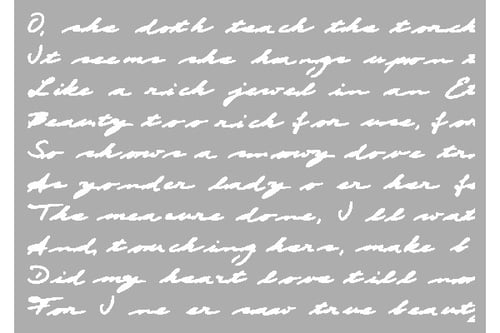 O, she doth teach the torch
It seems she hangs upon
Like a rich jewel in an
Beauty too rich for use, for
So shows a snowy dove
As yonder lady o er her
The measure done, I ll wat
And, touching hers, make b
Did my heart love till
For I ne er saw true beauty